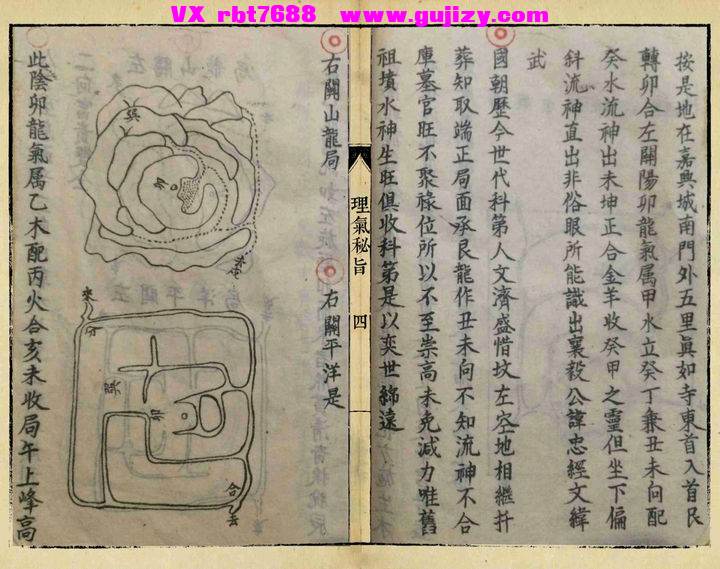 VX rbt7688  www.gujizy.com
按是地在嘉興城南門外五里眞如寺東首入首艮
轉卯合左關陽卯龍氣属甲水立癸丁兼丑未向配
癸水流神出未坤正合金羊收癸甲之靈但坐下偏
斜流神直出非俗眼所能識出襄毅公諱忠經文緯
武
國朝歷今世代科第人文濟盛惜坟左空地相継扦
葬知取端正局面承艮龍作丑未向不知流神不合
庫墓官旺不聚祿位所以不至崇高未免減力唯舊
祖墳水神生旺俱收科第是以奕世綿遠
理氣秘旨 四
右關山龍局
右關平洋是
巽
卯
未
來
巽
卯
合
去
此陰卯龍氣属乙木配丙火合亥未收局午上峰高